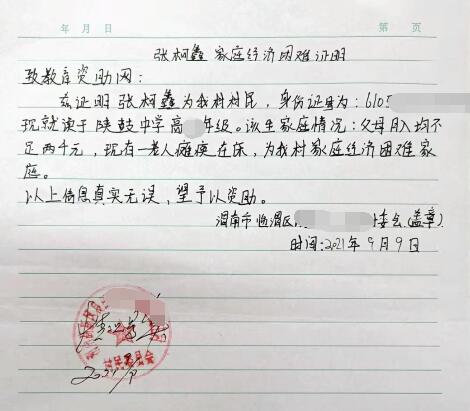 年 月 日 第 页
张柯鑫 家庭经济困难证明
致教育资助网：
兹证明 张柯鑫 为我村村民，身份证号为：6105
现就读于 陕鼓中学高 年级。该生家庭情况：父母月入均不
足两千元，现有一老人瘫痪在床，为我村家庭经济困难家
庭。
以上信息真实无误，望予以资助。
渭南市临渭区 委会（盖章）
时间：2021年9月9日